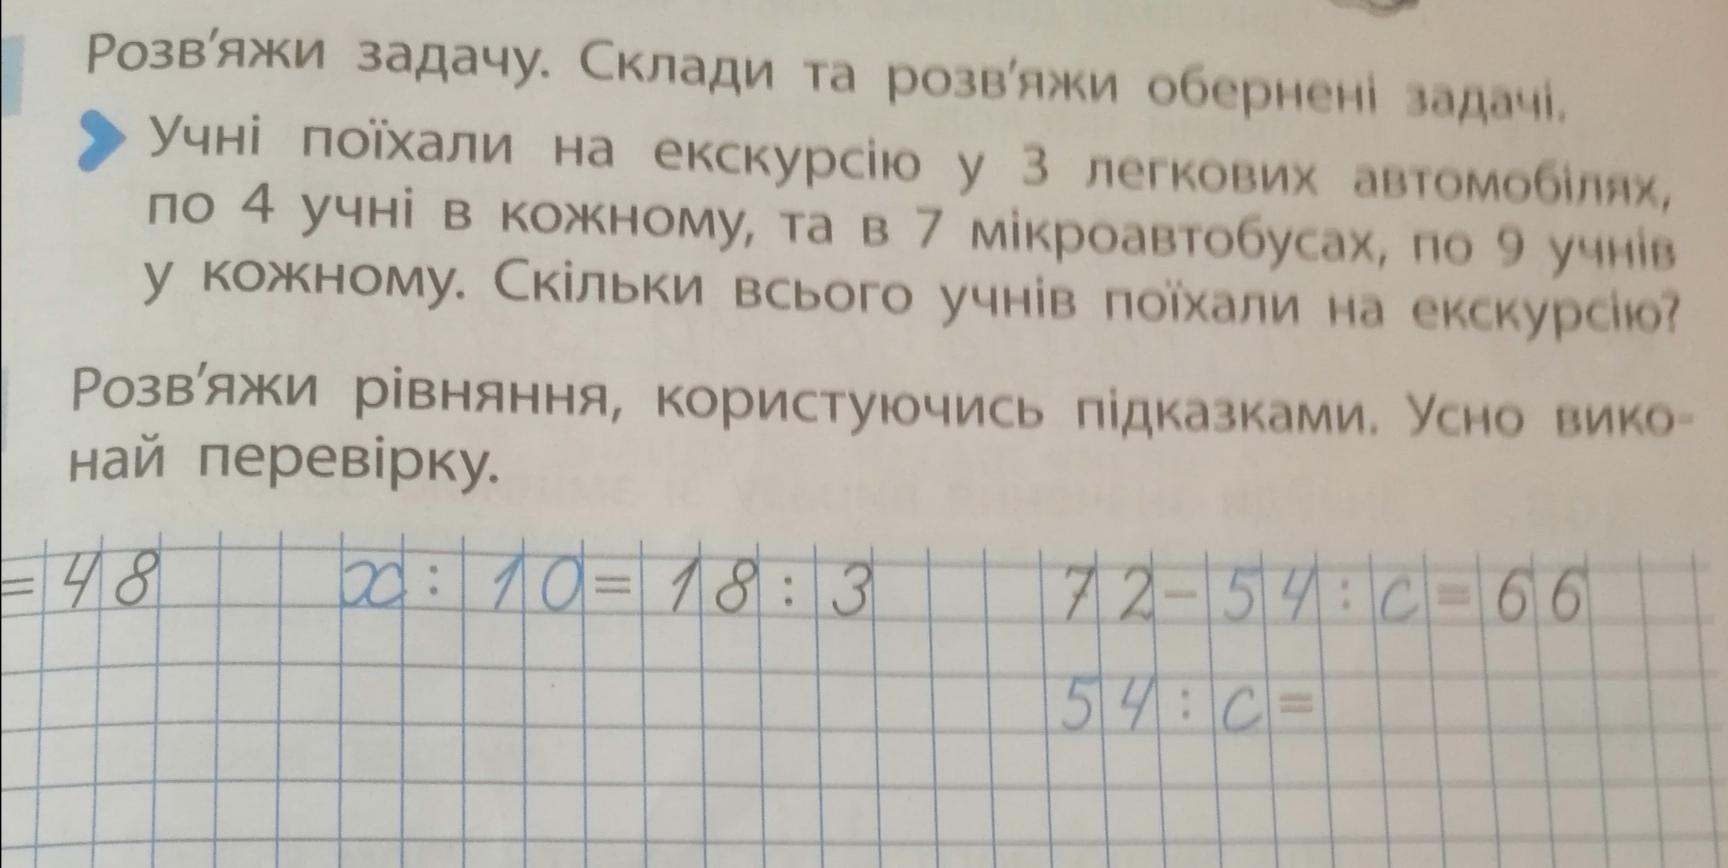 Розв'яжи задачу. Склади та розв'яжи обернені задачі.
Учні поїхали на екскурсію у 3 легкових автомобілях,
по 4 учні в кожному, та в 7 мікроавтобусах, по 9 учнів
у кожному. Скільки всього учнів поїхали на екскурсію?
Розв'яжи рівняння, користуючись підказками. Усно вико-
най перевірку.
=48 x:10=18:3 72-54:c=66
54:c=